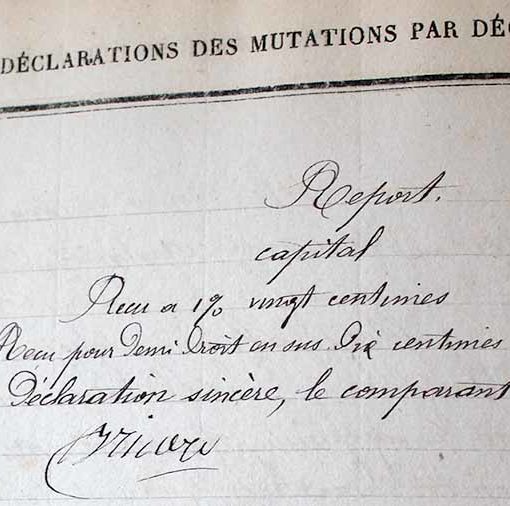 DÉCLARATIONS DES MUTATIONS PAR DÉC
Report.
capital
Recu a 1% vingt centimes
Recu pour Demi Droit en sus Dix centimes
Déclaration sincère, le comparant